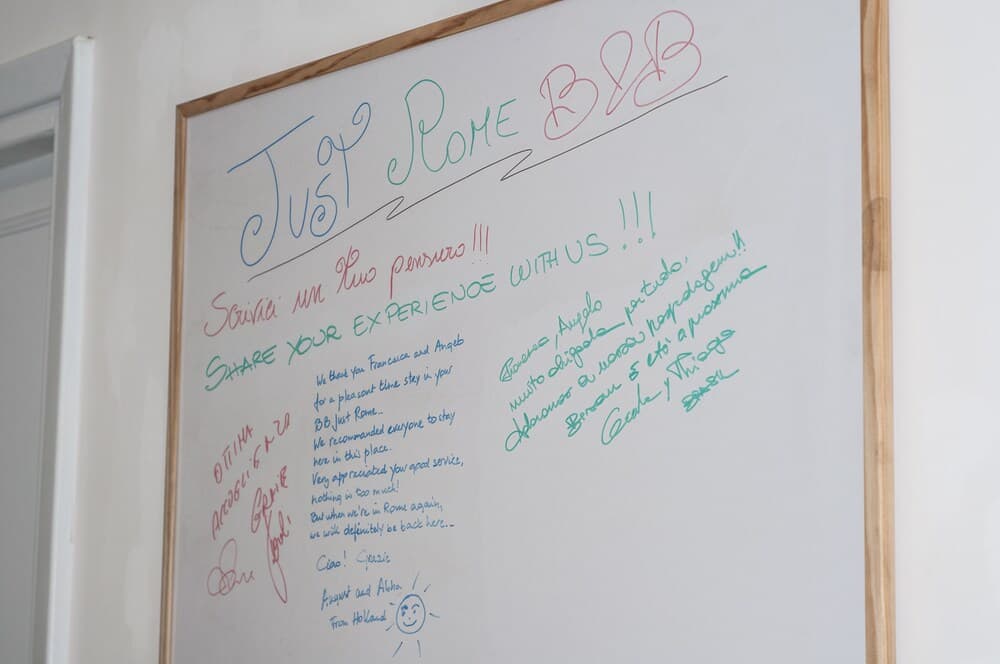 JUST ROME B&B
Scrivici un tuo pensiero!!!
SHARE YOUR EXPERIENCE WITH US!!!
OTTIMA
ACCOGLIENZA
We thank you Francesca and Angelo
for a pleasant time stay in your
BB Just Rome...
We recommanded everyone to stay
here in this place.
Very appreciated your good service,
nothing is too much!
But when we're in Rome again,
we will definitely be back here...
Ciao! Grazie
August and
From Holland
Angelo
muito obrigada por tudo,
Adoramos a nossa hospedagem!!
até a próxima
y Thiago
BRASIL